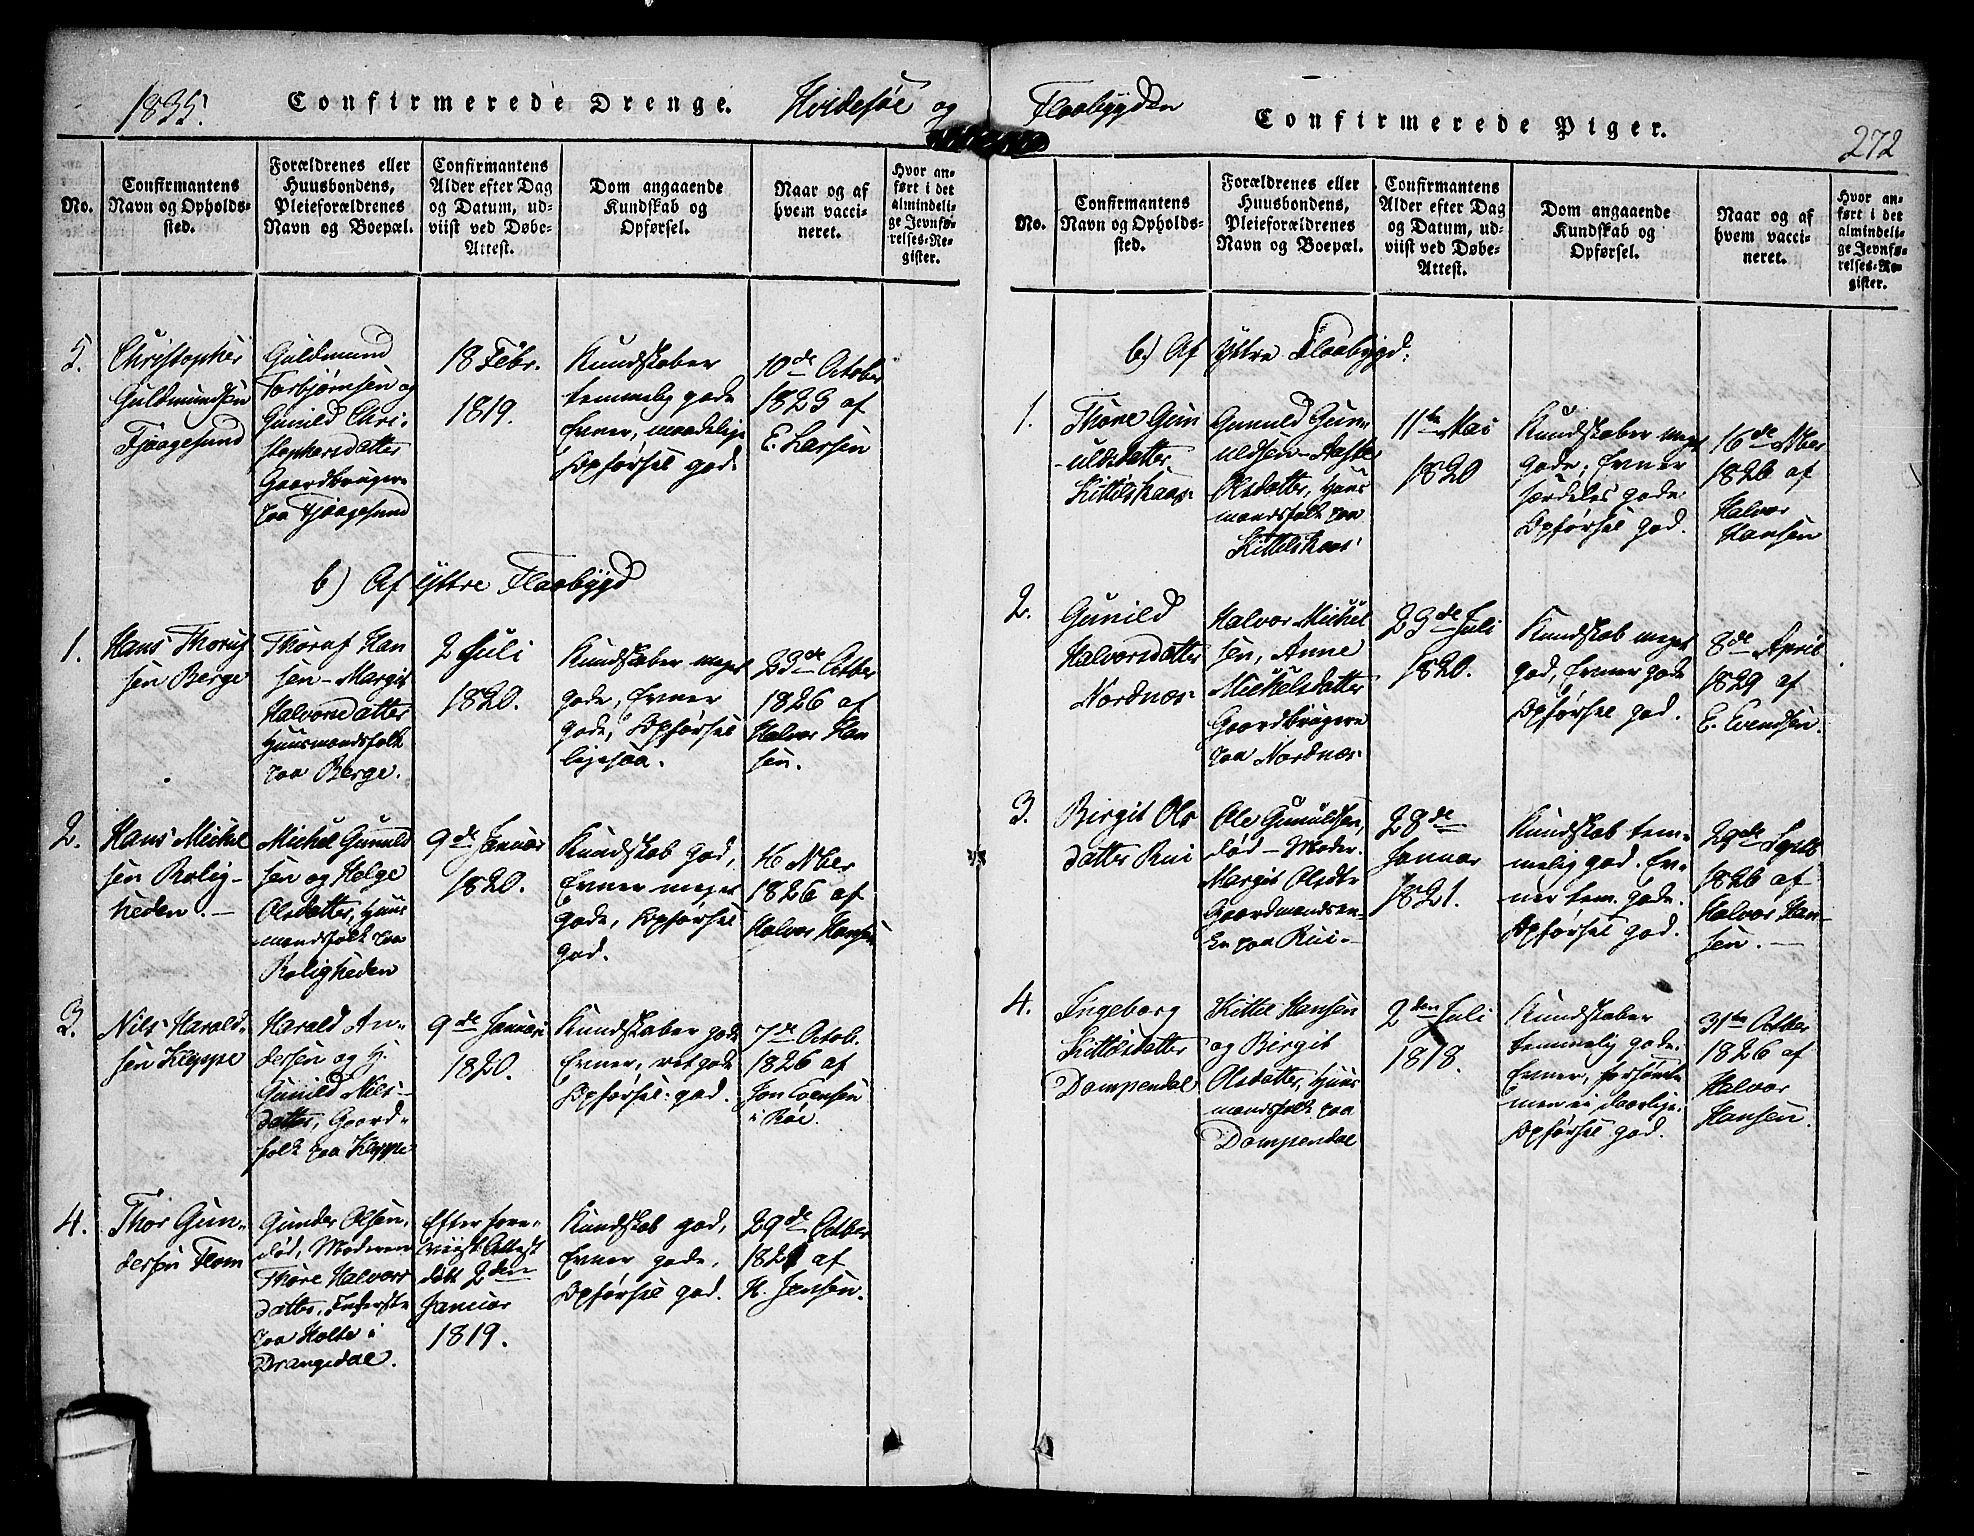 1835.
Confirmerede Drenge.
Hvidesøe og
No.
Confirmantens
Navn og Opholds-
sted.
Forældrenes eller
Huusbondens,
Pleieforældrenes
Navn og Boepæl.
Confirmantens
Alder efter Dag
og Datum, ud-
viist ved Døbe-
Attest.
Dom angaaende
Kundskab og
Opførsel.
Naar og af
hvem vacci-
neret.
Hvor an-
ført i det
almindeli-
ge Jevnfø-
relses-Re-
gister.
5.
Christopher
Guldmundsen
Fjaagesund
Guldmund
Torbjørnsen og
Gunild Chri-
stophersdatter
Gaardbrugere
paa Fjaagesund
18 Febr.
1819.
Kundskaber
temmelig gode
Evner, maadelige
Opførsel god.
10de October
1823 af
E. Larsen
b) Af Yttre Flaabygd
1.
Hans Thorufs
sen Berge
Thoruf Han
sen - Margit
Halvorsdatter
Huusmandsfolk
paa Berge.
2 Juli
1820.
Kundskaber meget
gode, Evner
gode, Opførsel
ligesaa.
23de Octber
1826 af
Halvor Han
sen.
2.
Hans Michel
sen Rolig-
heden. -
Michel Gunuld
sen og Helge
Olsdatter, Huus
mandsfolk paa
Roligheden
9de Januar
1820.
Kundskab god,
Evner meget
gode, Opførsel
god.
16 Nber
1826 af
Halvor Hansen
3.
Nils Harald-
sen Kleppe
Harald An-
dersen og H.
Gunild Nils-
datter, Gaard-
folk paa Kleppe
9de Januar
1820.
Kundskaber gode
Evner, ret gode
Opførsel god.
7de Octob.
1826 af
Jon Evensen
i Bøe.
4.
Thor Gun-
dersen Flom
Gunder Olsen,
død, Moderen
Thore Halvors
datter, Inderste
paa Holte i
Drangedal.
Efter fore-
viist Attest
født 2den
Januar
1819.
Kundskab god,
Evner gode,
Opførsel god.
29de Octber
1821 af
H. Jensen.
Flaabygden
Confirmerede Piger.
272
No.
Confirmantens
Navn og Opholds-
sted.
Forældrenes eller
Huusbondens,
Pleieforældrenes
Navn og Boepæl.
Confirmantens
Alder efter Dag
og Datum, ud-
viist ved Døbe-
Attest.
Dom angaaende
Kundskab og
Opførsel.
Naar og af
hvem vacci-
neret.
Hvor an-
ført i det
almindeli-
ge Jevnfø-
relses-Re-
gister.
b) Af Yttre Flaabygd:
1.
Thore Gun
-uldsdatter
Kittilskaas
Gunuld Gun-
uldsen - Aaste
Olsdatter, Huus
mandsfolk paa
Kittelskaas
11te Mai
1820
Kundskaber meget
gode, Evner
særdeles gode
Opførsel god.
16de Nber
1826 af
Halvor
Hansen
2.
Gunild
Halvorsdatter
Nordnæs
Halvor Michel
sen, Anne
Mickelsdatter
Gaardbrugere
paa Nordnæs
23de Juli
1820.
Kundskab meget
god, Evner gode
Opførsel god.
8de April
1829 af
E. Evendsen.
3.
Birgit Ols
datter Rui
Ole Gunuldsen,
død - Moder
Margit Olsdtr
Gaardmandsen-
ke paa Rui -
28de
Januar
1821.
Kundskab tem-
melig god. Ev-
ner tem. gode.
Opførsel god.
29de Septb
1826 af
Halvor Han-
sen. -
4.
Ingeborg
Kittilsdatter
Dampendal
Kittil Hansen
og Birgit
Olsdatter, Huus
mandsfolk paa
Dampendal
2den Juli
1818.
Kundskaber
temmelig gode.
Evner, forsømte
men ei daarlige.
Opførsel god.
31te Octber
1826 af
Halvor
Hansen.